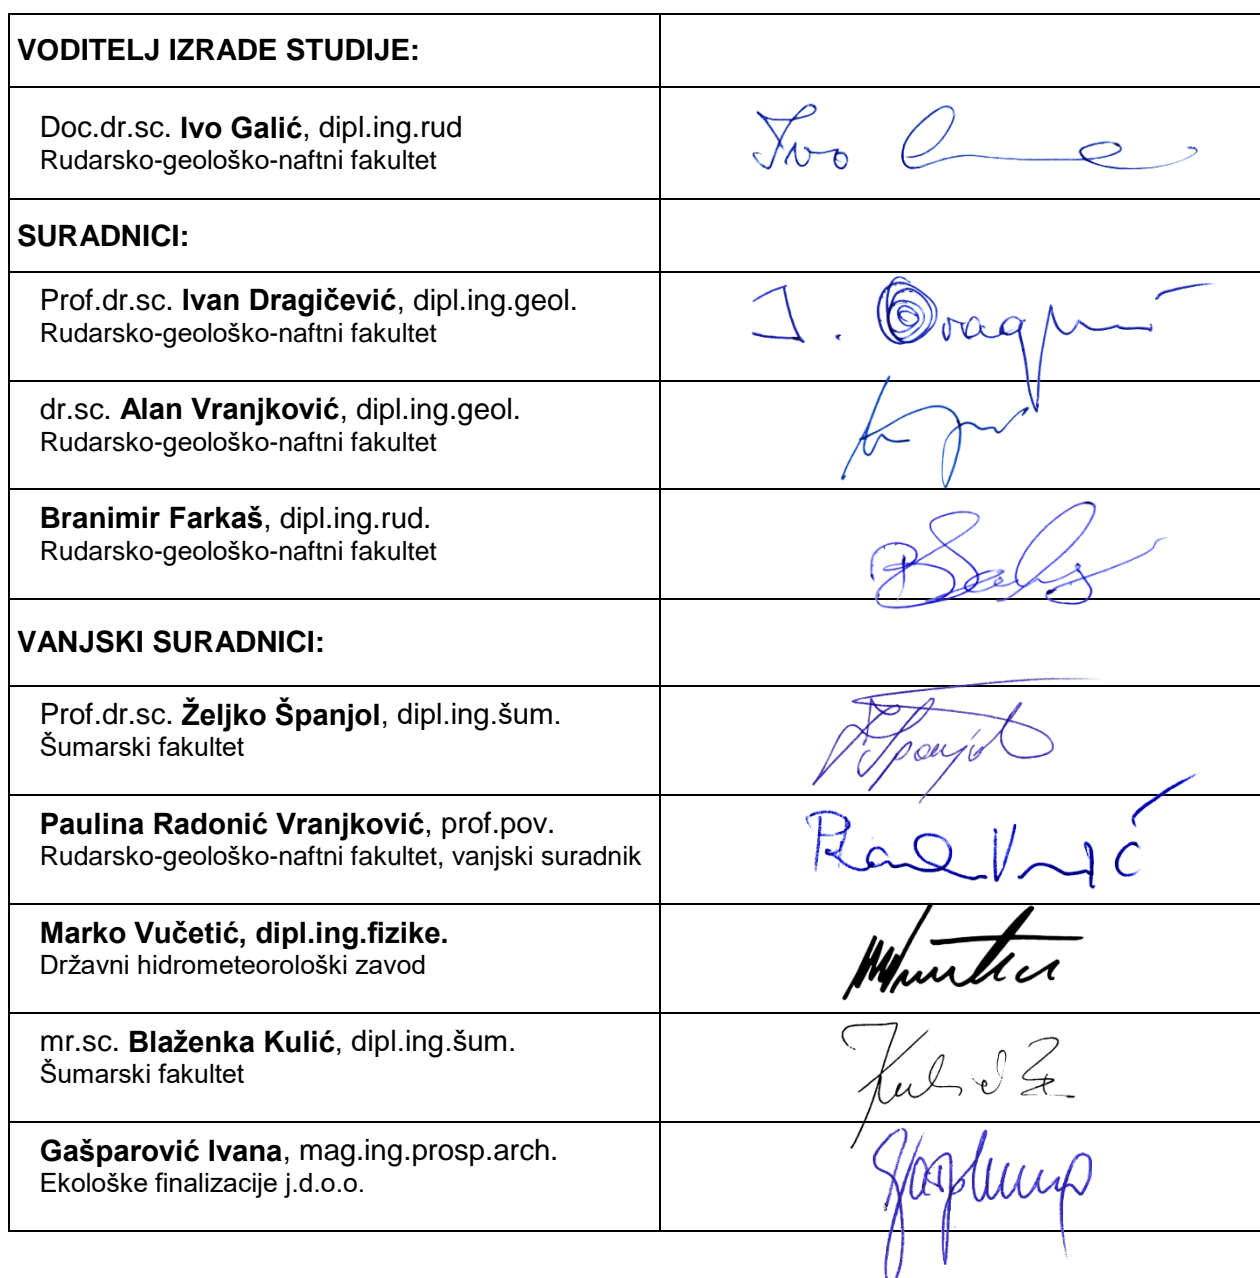 VODITELJ IZRADE STUDIJE:
Doc.dr.sc. Ivo Galić, dipl.ing.rud
Rudarsko-geološko-naftni fakultet
Ivo
SURADNICI:
Prof.dr.sc. Ivan Dragičević, dipl.ing.geol.
Rudarsko-geološko-naftni fakultet
dr.sc. Alan Vranjković, dipl.ing.geol.
Rudarsko-geološko-naftni fakultet
Branimir Farkaš, dipl.ing.rud.
Rudarsko-geološko-naftni fakultet
VANJSKI SURADNICI:
Prof.dr.sc. Željko Španjol, dipl.ing.šum.
Šumarski fakultet
Paulina Radonić Vranjković, prof.pov.
Rudarsko-geološko-naftni fakultet, vanjski suradnik
Marko Vučetić, dipl.ing.fizike.
Državni hidrometeorološki zavod
mr.sc. Blaženka Kulić, dipl.ing.šum.
Šumarski fakultet
Gašparović Ivana, mag.ing.prosp.arch.
Ekološke finalizacije j.d.o.o.